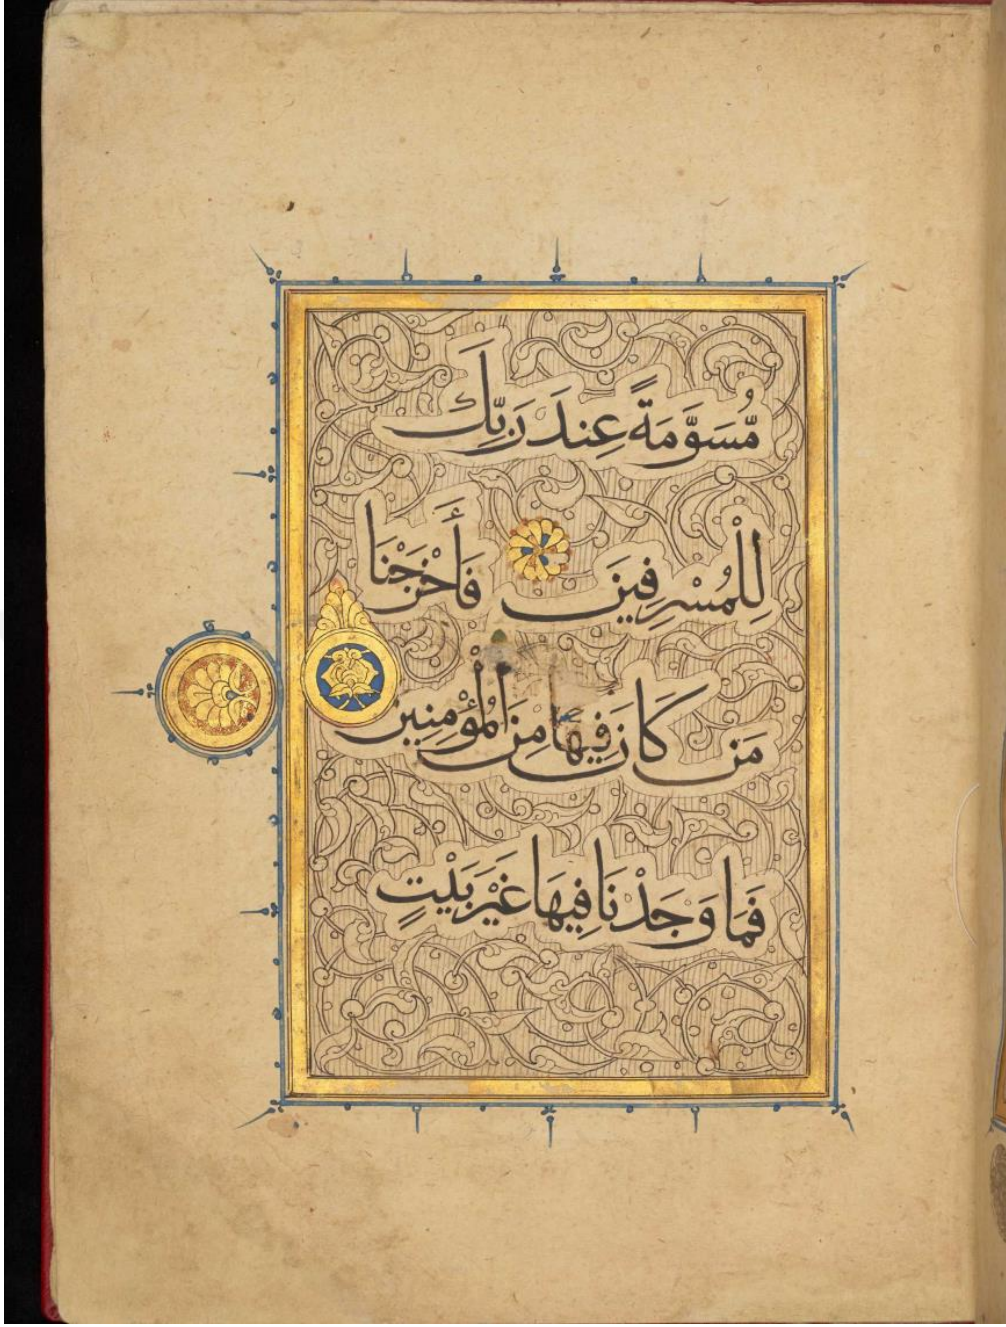 مُّسَوَّمَةً عِندَ رَبِّكَ
لِلْمُسْرِفِينَ فَأَخْرَجْنَا
مَن كَانَ فِيهَا مِنَ الْمُؤْمِنِينَ
فَمَا وَجَدْنَا فِيهَا غَيْرَ بَيْتٍ